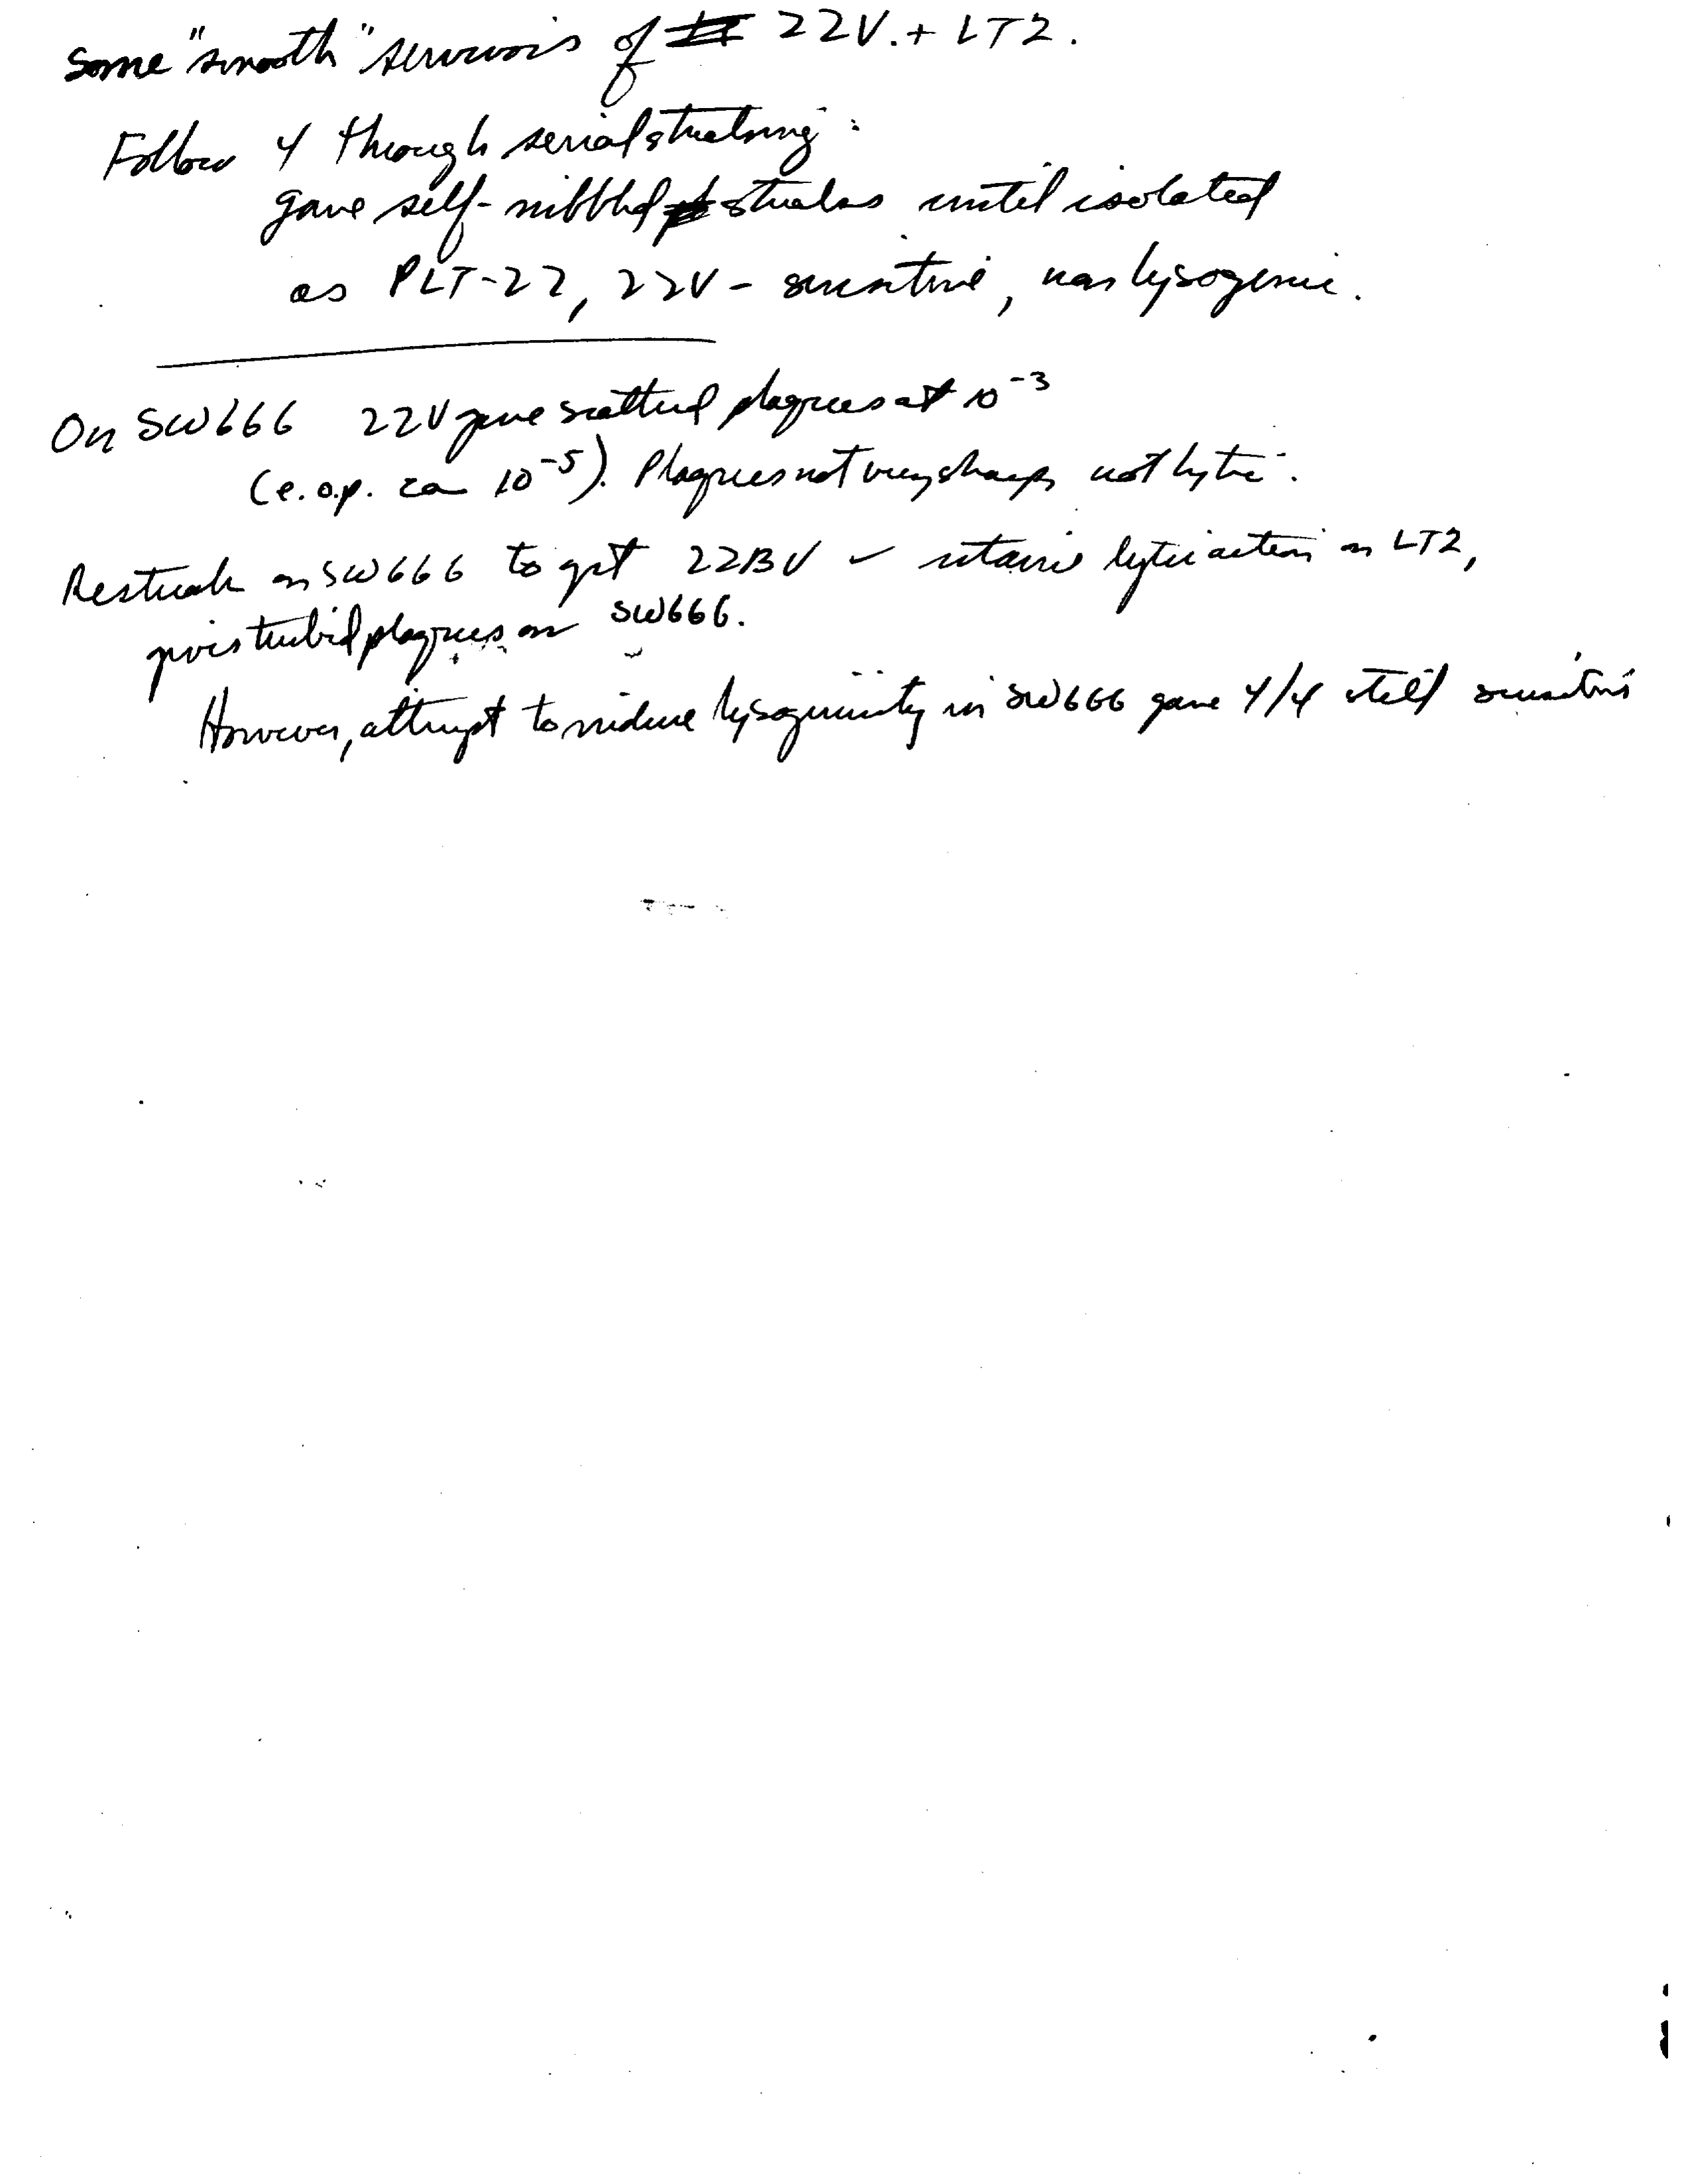 Some "smooth" survivors of 22V. + LT2.
Follow 4 through serial streaking:
gave self-nibbled streaks until isolated
as PLT-22, 22V - sensitive, non lysogenic.
On SW666 22V gave scattered plaques at 10⁻³
(e.o.p. ca 10⁻⁵). Plaques not very sharp, not lytic.
Restreak on SW666 to get 22BV - retains lytic action on LT2,
gives turbid plaques on SW666.
However, attempt to induce lysogenicity in SW666 gave 4/4 still sensitive